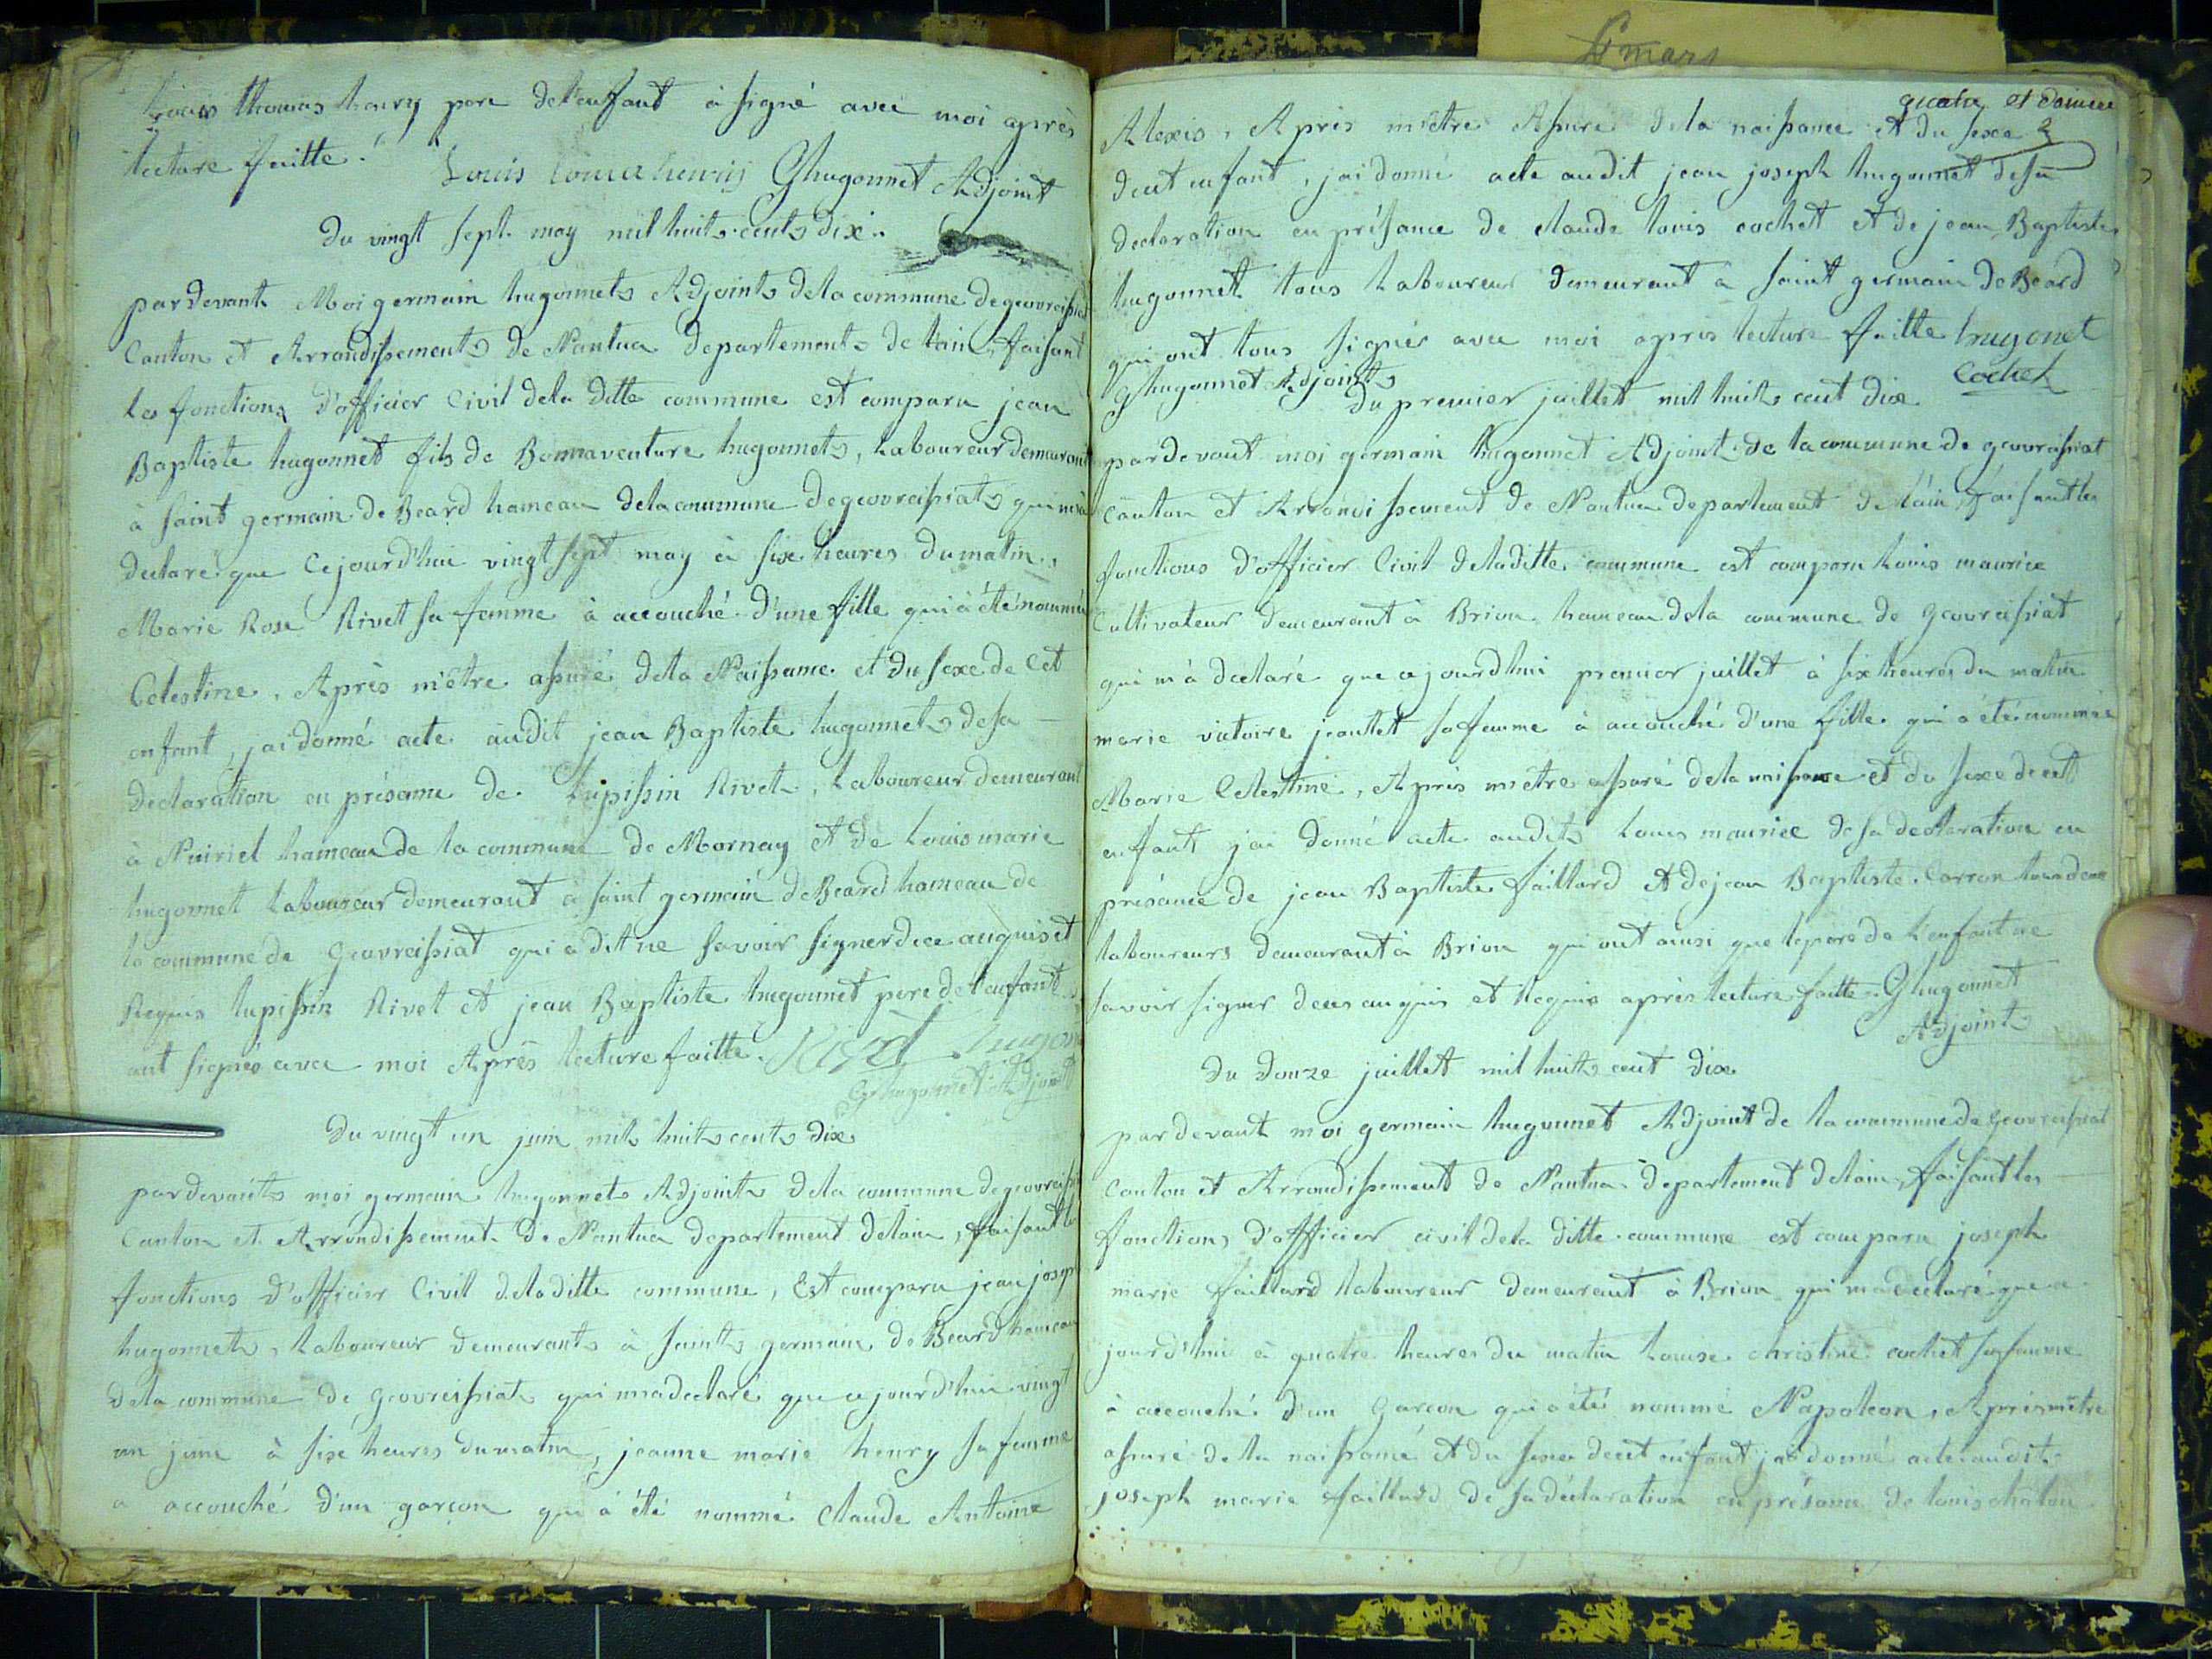 Louis thomas henry pere de l'enfant à signé avec moi après
lecture faitte. Louis tomas henriy Ghugonnet Adjoint
Du vingt sept may mil huits cents dix.
pardevant Moi germain hugonnets Adjoints dela commune de geovreissiat
Canton et Arrondissements de Nantua departements de lain, faisant
les fonctions d'officier Civil dela ditte commune est comparu jean
Baptiste hugonnet fils de Bonnaventure hugonnets, Laboureur demeurant
à saint germain de Beard hameau dela commune de geovreissiats qui m'a
declaré que Cejourd'hui vingt sept may à six heures du matin,
Marie Rose Rivet sa femme à accouché d'une fille qui à été nommée
Celestine, Après m'être assuré dela Naissance et du sexe de Cet
enfant, jai donné acte audit jean Baptiste hugonnets de sa
declaration en présance de Lupissin Rivet, Laboureur demeurant
à Nuiriel hameau de la commune de Mornay et de Louis marie
hugonnet Laboureur demeurant à saint germain de Beard hameau de
la commune de Geovreissiat qui a dit ne savoir signer de ce anquis et
Requis lupissin Rivet et jean Baptiste hugonnet pere de l'enfant
ont signés avec moi Après lecture faitte. Rivet hugonnet
Ghugonnet Adjoint
Du vingt un juin mil huits cents dix
pardevants moi germain hugonnets Adjoints dela commune de geovreissiat
Canton et Arrondissement de Nantua departement delain, faisant les
fonctions d'officier Civil deladitte commune, Est comparu jean joseph
hugonnets, Laboureur demeurants à saints germain de Beard hameau
dela commune de Geovreissiats qui ma declaré que cejourd'hui vingt
un juin à six heures du matin, jeanne marie henry sa femme
a accouché d'un garcon qui à été nommé Claude Antoine
4 mars
quatre et
Alexis, Après m'être Assuré dela naissance et du sexe
decet enfant, jai donné acte audit jean joseph hugonnet desa
declaration en présance de claude louis cochet et de jean Baptiste
hugonnet tous Laboureur demeurant à saint germain de Beard
qui ont tous signés avec moi après lecture faitte hugonet
Ghugonnet Adjoints Cochet
Du premier juillet mil huits cent dix
pardevant moi germain hugonnet Adjoint de la commune de geovreissiat
Canton et Arrondissement de Nantua departement de lain, faisant les
fonctions d'officier Civil deladitte commune est comparu Louis maurice
Cultivateur demeurant à Brion hameau dela commune de Geovreissiat
qui m'à declaré que cejourdhui premier juillet à six heures du matin
marie victoire jeantet sa femme à accouché d'une fille qui a été nommée
Marie Celestine, Après m'être assuré dela naissance et du sexe de cett
enfant jai donné acte audits Louis maurice de sa declaration en
présance de jean Baptiste faillard et de jean Baptiste Carron tous deux
laboureurs demeurant à Brion qui ont ainsi que le pere de l'enfant ne
savoir signer deces anquis et Requis après lecture faitte. Ghugonnet
Adjoints
Du Douze juillet mil huits cent dix
pardevant moi germain hugonnet Adjoint de la commune de Geovreissiat
Canton et Arrondissement de Nantua departement delain, faisant les
fonctions d'officier civil dela ditte commune est comparu joseph
marie faillard laboureur demeurant à Brion qui ma declaré que ce
jourd'hui à quatre heures du matin Louise christine cochet sa femme
à accouché d'un Garcon qui à été nommé Napoleon, Après m'être
assuré dela naissance et du sexe decet enfant jai donné acte audit
joseph marie faillard de sa déclaration en présance de louis chatou